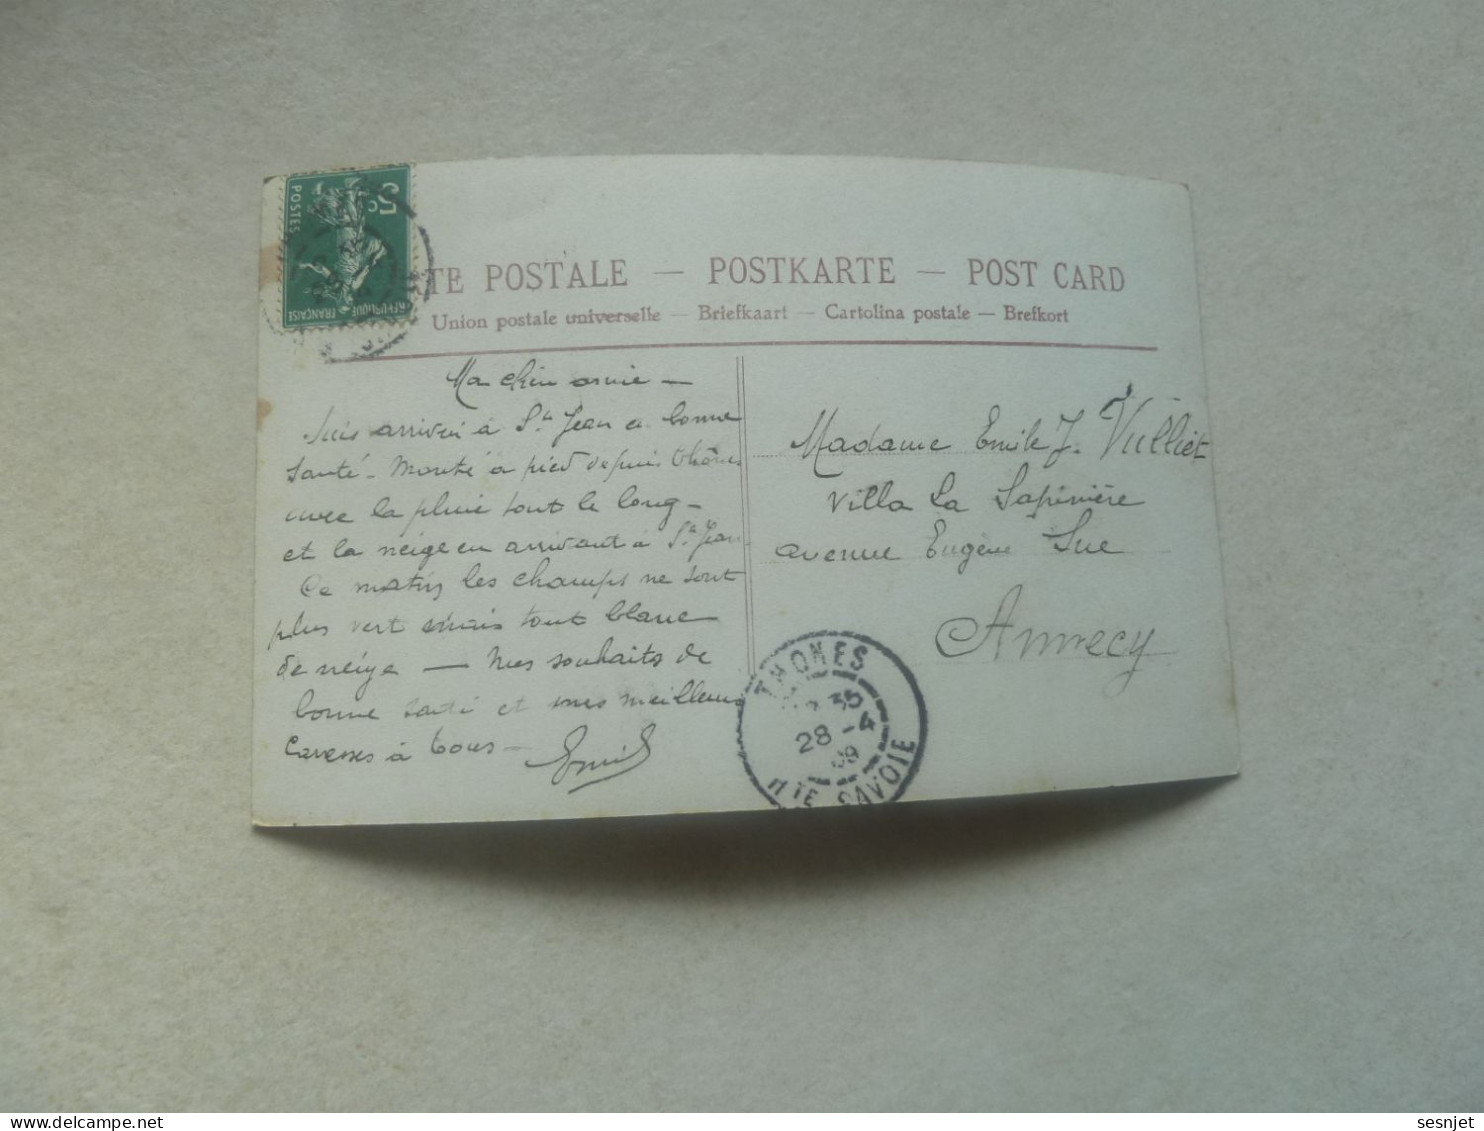 5c
POSTES
RÉPUBLIQUE FRANÇAISE
TE POSTALE — POSTKARTE — POST CARD
Union postale universelle — Briefkaart — Cartolina postale — Brefkort
Ma chère amie —
Suis arrivé à St Jean en bonne
santé - Monté à pied depuis Thônes
avec la pluie tout le long -
et la neige en arrivant à St Jean
Ce matin les champs ne sont
plus vert mais tout blanc
de neige — Mes souhaits de
bonne santé et mes meilleurs
Caresses à tous - Emile
Madame Emile J. Vulliet
Villa La Sapinière
avenue Eugène Sue
Annecy
THONES
35
28 - 4
09
HTE SAVOIE
sesnjet